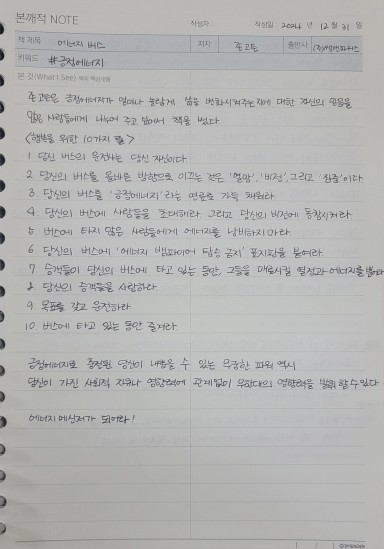 본깨적 NOTE 작성자 작성일 : 2024 년 12 월 31 일
책 제목 에너지 버스 저자 존 고든 출판사 (주)쌤앤파커스
키워드 #긍정에너지
본 것(What I See)
존고든은 긍정에너지가 얼마나 놀랍게 삶을 변화시켜주는지에 대한 자신의 믿음을
많은 사람들에게 나누어 주고 싶어서 책을 썼다
<행복을 위한 10가지 룰>
1. 당신 버스의 운전사는 당신 자신이다
2. 당신의 버스를 올바른 방향으로 이끄는 것은 '열망', '비전', 그리고 '집중'이다
3. 당신의 버스를 '긍정에너지'라는 연료로 가득 채워라
4. 당신의 버스에 사람들을 초대하라 그리고 당신의 비전에 동참시켜라
5. 버스에 타지 않은 사람들에게 에너지를 낭비하지마라
6. 당신의 버스에 '에너지 뱀파이어 탑승 금지' 표지판을 붙여라
7. 승객들이 당신의 버스에 타고 있는 동안, 그들을 매료시킬 열정과 에너지를 뿜어라
8. 당신의 승객들을 사랑하라
9. 목표를 갖고 운전하라
10. 버스에 타고 있는 동안 즐겨라
긍정에너지로 충전된 당신이 내뿜을 수 있는 무궁한 파워 역시
당신이 가진 사회적 지위나 영향력에 관계없이 무한대의 영향력을 발휘 할 수 있다
에너지 메신저가 되어라!